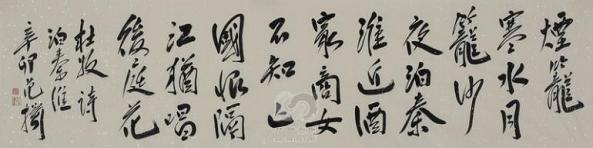 煙籠
寒水月
籠沙
夜泊秦
淮近酒
家商女
不知亡
國恨隔
江猶唱
後庭花
杜牧詩
泊秦淮
辛卯